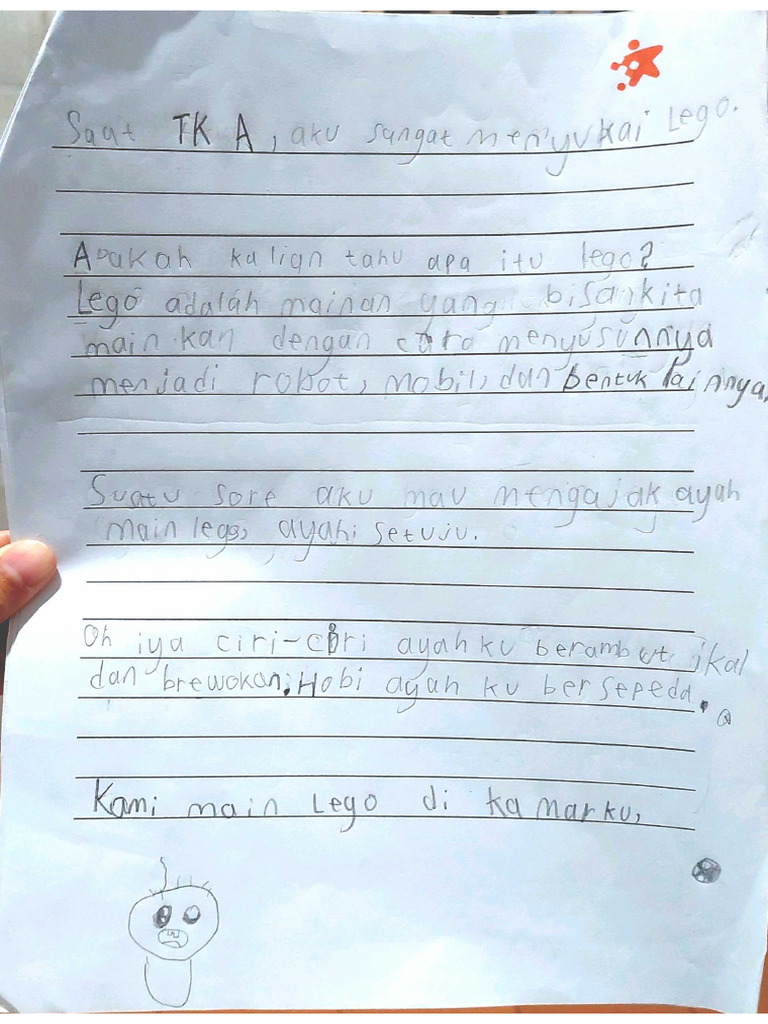 Saat TK A, aku sangat menyukai Lego.
Apakah kalian tahu apa itu lego?
Lego adalah mainan yang bisa kita
mainkan dengan cara menyusunnya
menjadi robot, mobil, dan bentuk lainnya.
Suatu sore aku mau mengajak ayah
main lego, ayah setuju.
Oh iya ciri-ciri ayahku berambut ikal
dan brewokan. Hobi ayah ku bersepeda.
Kami main Lego di kamarku,